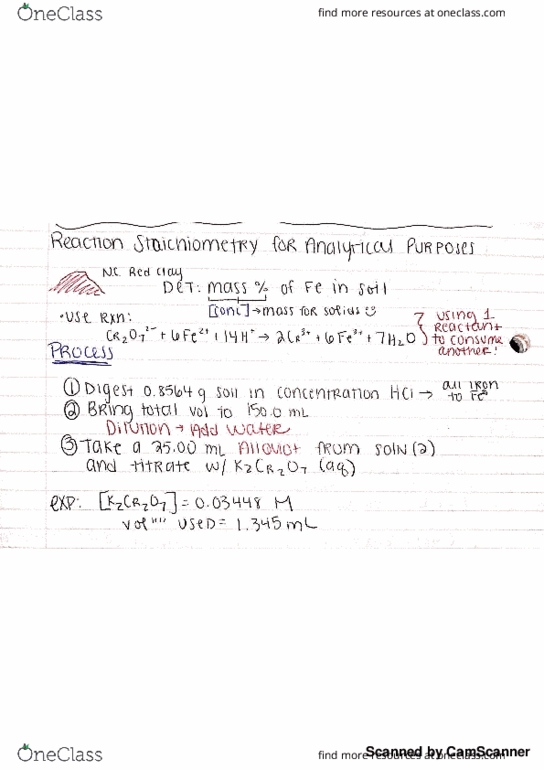 OneClass
find more resources at oneclass.com
Reaction Stoichiometry for Analytical Purposes
NC Red Clay
DET: mass % of Fe in soil
[conc] → mass for solids
• USE RXN:
Cr₂O₇²⁻ + 6Fe²⁺ + 14H⁺ → 2Cr³⁺ + 6Fe³⁺ + 7H₂O
using 1 Reactant to consume another!
PROCESS
① Digest 0.8564 g soil in concentration HCl → all iron to Fe²⁺
② Bring total vol to 150.0 mL
Dilution → Add water
③ Take a 25.00 mL Aliquot from soln (2)
and titrate w/ K₂Cr₂O₇ (aq)
exp: [K₂Cr₂O₇] = 0.03448 M
vol "" USED = 1.345 mL
OneClass
find more resources at oneclass.com
Scanned by CamScanner